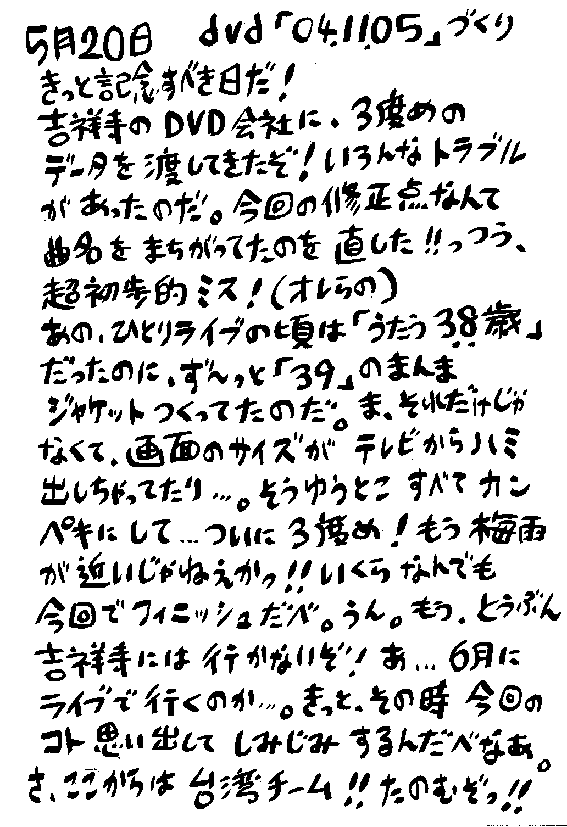 5月20日 dvd「04.11.05」づくり
きっと記念すべき日だ!
吉祥寺のDVD会社に、3度めの
データを渡してきたぞ!いろんなトラブル
があったのだ。今回の修正点なんて
曲名をまちがってたのを直した!!っつう、
超初歩的ミス!(オレらの)
あの、ひとりライブの頃は「うたう38歳」
だったのに、ずーっと「39」のまんま
ジャケットつくってたのだ。ま、それだけじゃ
なくて、画面のサイズがテレビからハミ
出しちゃってたり…。そうゆうとこすべてカン
ペキにして…ついに3度め!もう梅雨
が近いじゃねえかっ!!いくらなんでも
今回でフィニッシュだべ。うん。もう、とうぶん
吉祥寺には行かないぞ!あ…6月に
ライブで行くのか…。きっと、その時今回の
コト思い出してしみじみするんだべなあ。
さ、ここからは台湾チーム!!たのむぞっ!!